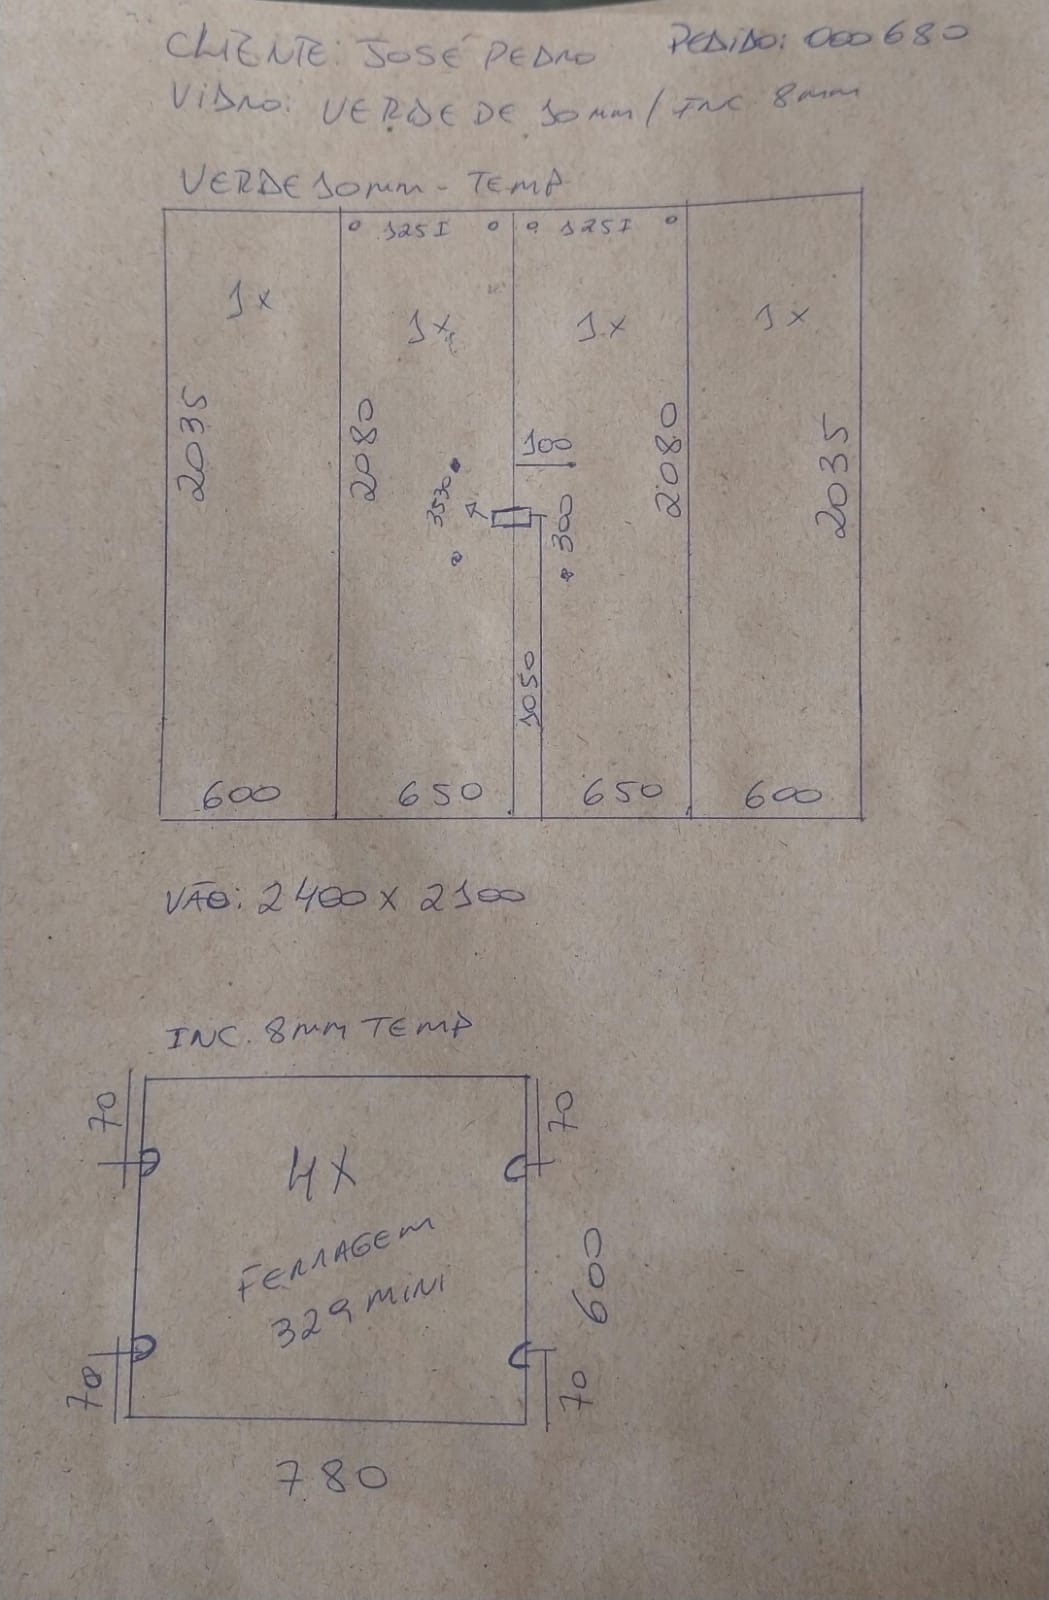 CLIENTE: JOSÉ PEDRO PEDIDO: 000680
VIDRO: VERDE DE 10mm / INC 8mm
VERDE 10mm - TEMP
1251 1251
1x 1x 1x 1x
2035 2080 2080 2035
100
3530
300
1050
600 650 650 600
VÃO: 2400 x 2100
INC. 8mm TEMP
70 70
4X
FERRAGEM
329 MINI
600
70 70
780